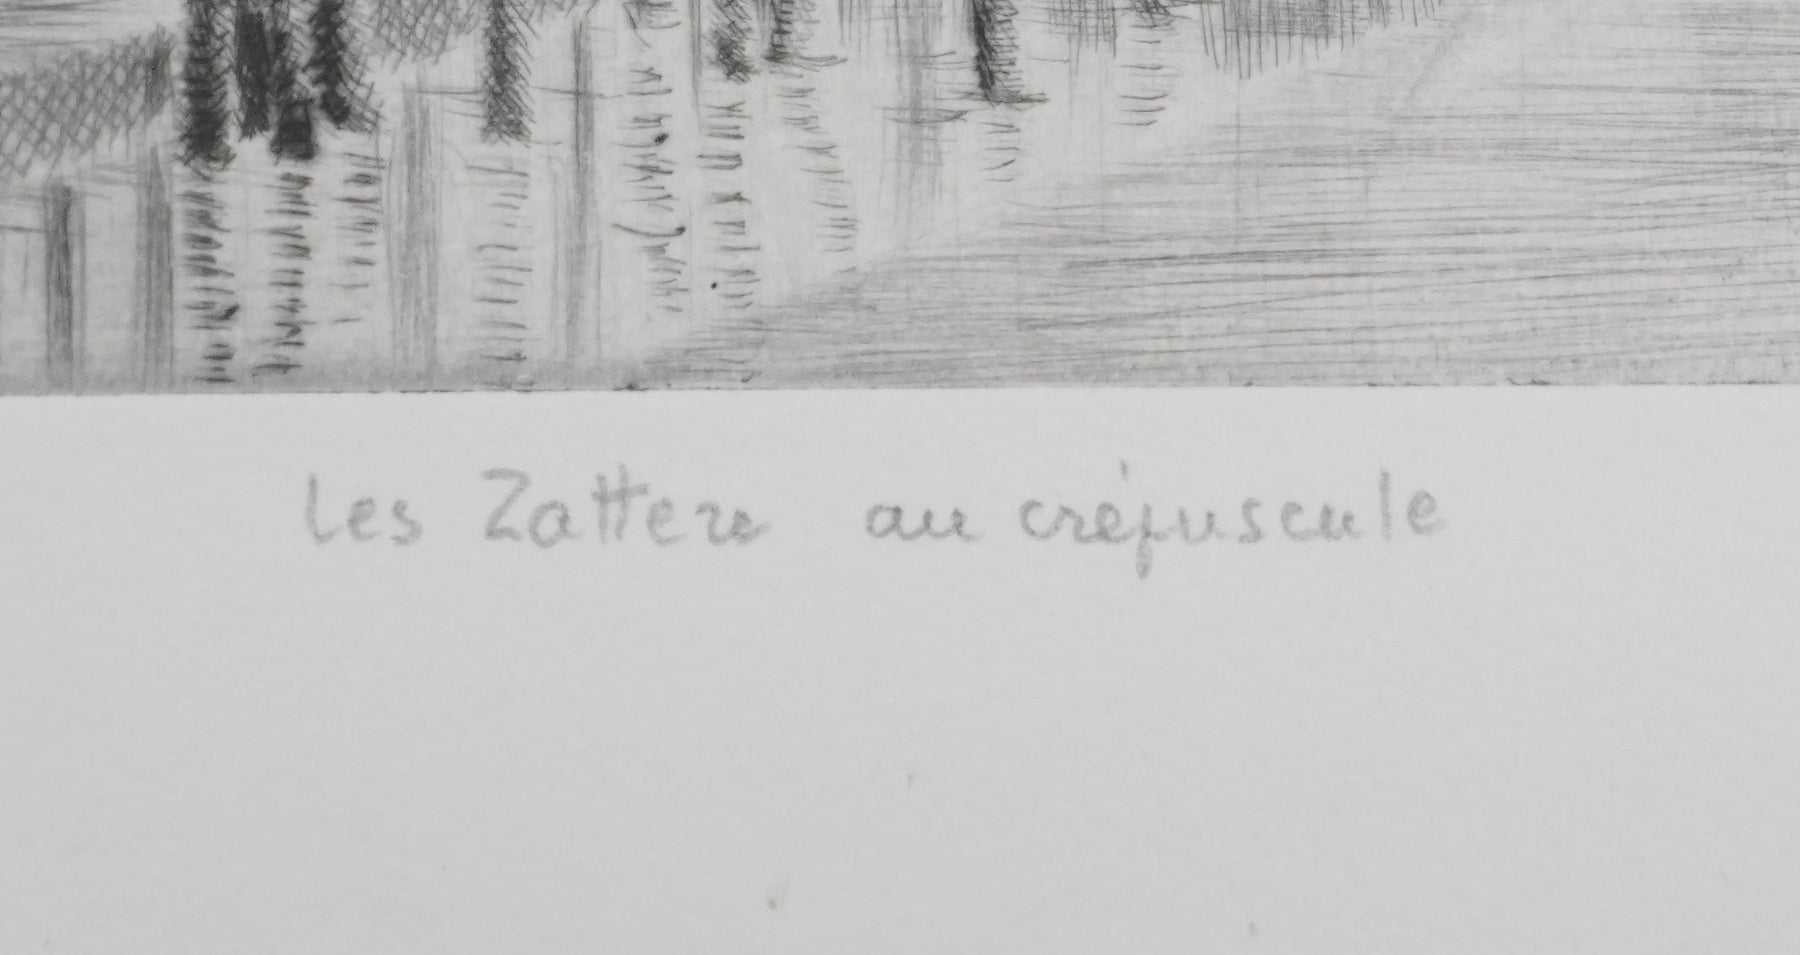 les Zattere au crépuscule